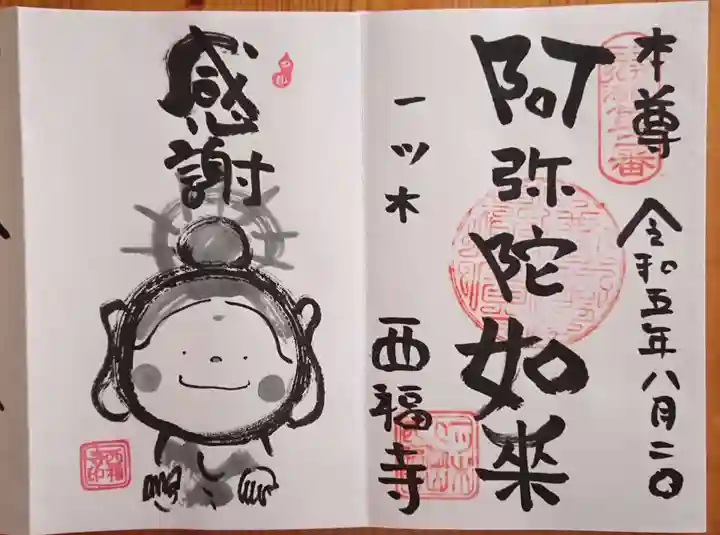 本尊
令和五年八月二〇
阿弥陀如来
一ツ木
西福寺
感謝
西福寺印